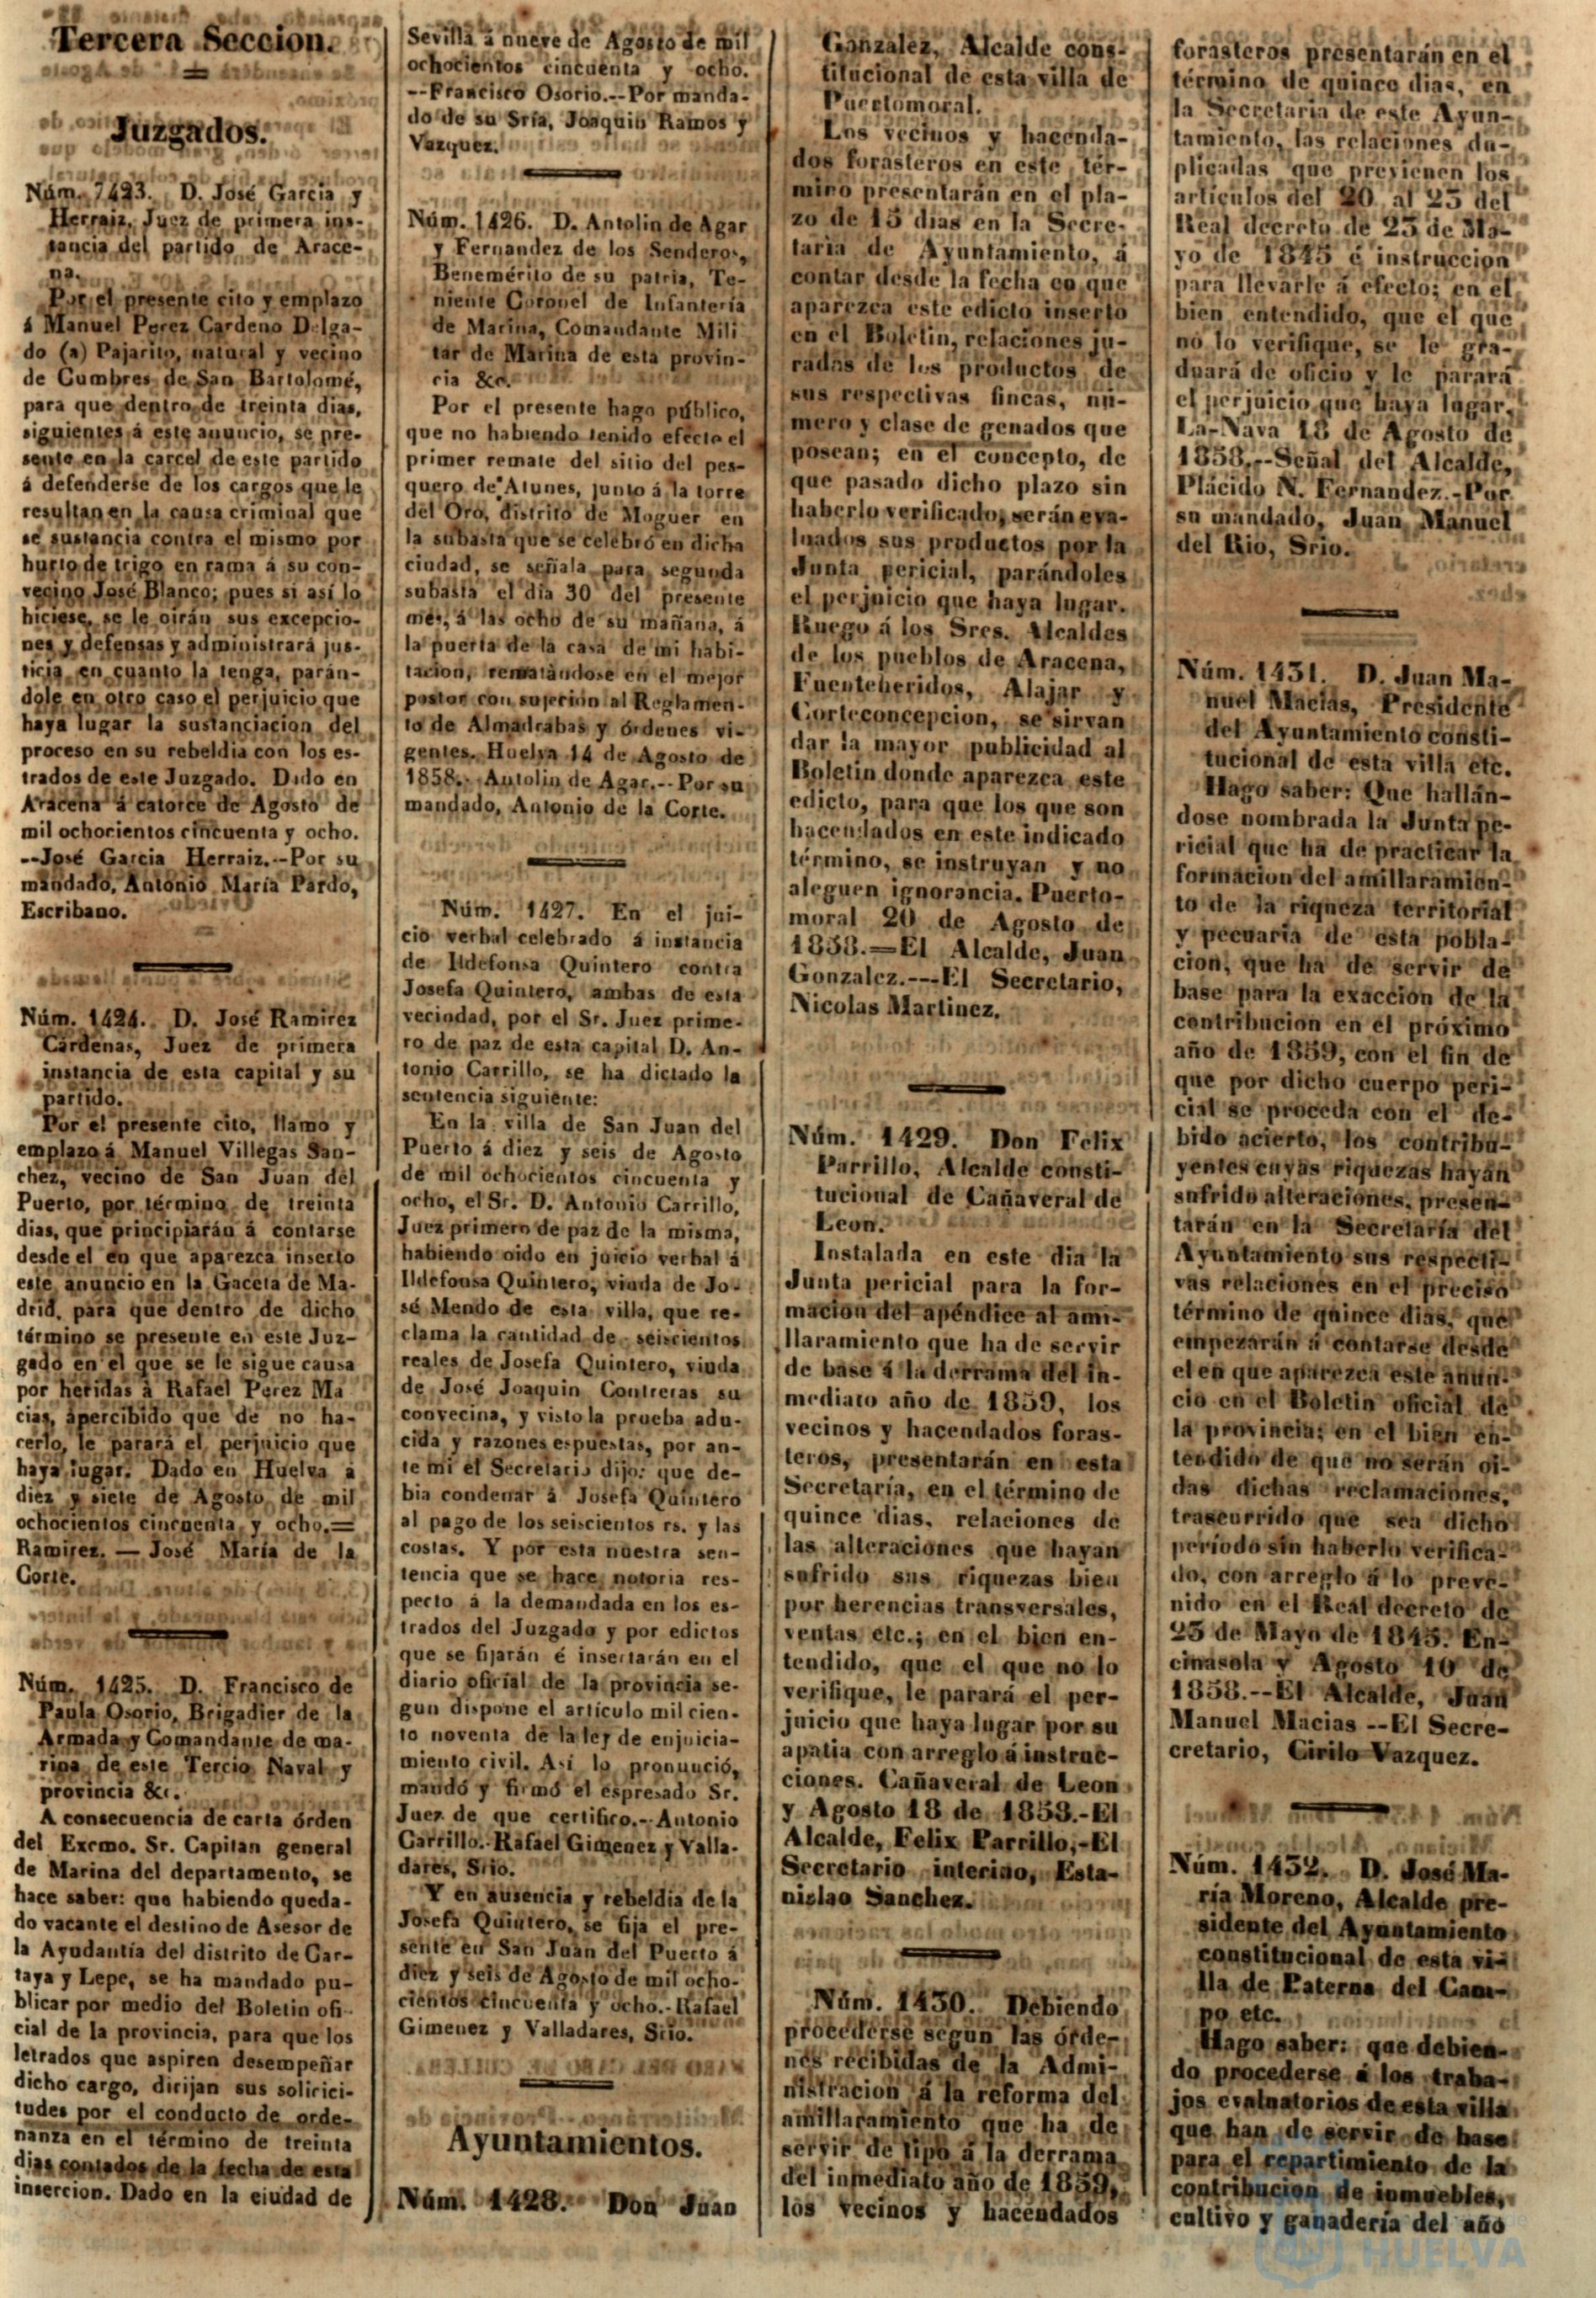 Tercera Seccion.
Juzgados.
Núm. 7423. D. José Garcia y
Herraiz, Juez de primera ins-
tancia del partido de Arace-
na.
Por el presente cito y emplazo
á Manuel Perez Cardeno Delga-
do (a) Pajarito, natural y vecino
de Cumbres de San Bartolomé,
para que dentro de treinta dias,
siguientes á este anuncio, se pre-
sente en la carcel de este partido
á defenderse de los cargos que le
resultan en la causa criminal que
se sustancia contra el mismo por
hurto de trigo en rama á su con-
vecino José Blanco; pues si así lo
hiciese, se le oirán sus excepcio-
nes y defensas y administrará jus-
ticia en cuanto la tenga, parán-
dole en otro caso el perjuicio que
haya lugar la sustanciacion del
proceso en su rebeldia con los es-
trados de este Juzgado. Dado en
Aracena á catorce de Agosto de
mil ochocientos cincuenta y ocho.
--José Garcia Herraiz.--Por su
mandado, Antonio María Pardo,
Escribano.
Núm. 1424. D. José Ramirez
Cárdenas, Juez de primera
instancia de esta capital y su
partido.
Por el presente cito, llamo y
emplazo á Manuel Villegas San-
chez, vecino de San Juan del
Puerto, por término de treinta
dias, que principiarán á contarse
desde el en que aparezca inserto
este anuncio en la Gaceta de Ma-
drid, para que dentro de dicho
término se presente en este Juz-
gado en el que se le sigue causa
por heridas á Rafael Perez Ma
cias, apercibido que de no ha-
cerlo, le parará el perjuicio que
haya lugar. Dado en Huelva á
diez y siete de Agosto de mil
ochocientos cincuenta y ocho.=
Ramirez. — José María de la
Corte.
Núm. 1425. D. Francisco de
Paula Osorio, Brigadier de la
Armada y Comandante de ma-
rina de este Tercio Naval y
provincia &c.
A consecuencia de carta órden
del Excmo. Sr. Capitan general
de Marina del departamento, se
hace saber: que habiendo queda-
do vacante el destino de Asesor de
la Ayudantía del distrito de Car-
taya y Lepe, se ha mandado pu-
blicar por medio del Boletin ofi-
cial de la provincia, para que los
letrados que aspiren desempeñar
dicho cargo, dirijan sus solirici-
tudes por el conducto de orde-
nanza en el término de treinta
dias contados de la fecha de esta
insercion. Dado en la ciudad de
Sevilla á nueve de Agosto de mil
ochocientos cincuenta y ocho.
--Francisco Osorio.--Por manda-
do de su Sría, Joaquin Ramos y
Vazquez.
Núm. 1426. D. Antolin de Agar
y Fernandez de los Senderos,
Benemérito de su patria, Te-
niente Coronel de Infantería
de Marina, Comandante Mili
tar de Marina de esta provin-
cia &c.
Por el presente hago público,
que no habiendo tenido efecto el
primer remate del sitio del pes-
quero de Atunes, junto á la torre
del Oro, distrito de Moguer en
la subasta que se celebró en dicha
ciudad, se señala para segunda
subasta el dia 30 del presente
mes, á las ocho de su mañana, á
la puerta de la casa de mi habi-
tacion, rematàndose en el mejor
postor con sujecion al Reglamen-
to de Almadrabas y órdenes vi-
gentes. Huelva 14 de Agosto de
1858.- Antolin de Agar.--Por su
mandado, Antonio de la Corte.
Núm. 1427. En el jui-
cio verbal celebrado á instancia
de Ildefonsa Quintero contra
Josefa Quintero, ambas de esta
vecindad, por el Sr. Juez prime-
ro de paz de esta capital D. An-
tonio Carrillo, se ha dictado la
sentencia siguiente:
En la villa de San Juan del
Puerto á diez y seis de Agosto
de mil ochocientos cincuenta y
ocho, el Sr. D. Antonio Carrillo,
Juez primero de paz de la misma,
habiendo oido en juicio verbal á
Ildefonsa Quintero, viuda de Jo-
sé Mendo de esta villa, que re-
clama la cantidad de seiscientos
reales de Josefa Quintero, viuda
de José Joaquin Contreras su
convecina, y visto la prueba adu-
cida y razones espuestas, por an-
te mi el Secretario dijo: que de-
bia condenar á Josefa Quintero
al pago de los seiscientos rs. y las
costas. Y por esta nuestra sen-
tencia que se hace notoria res-
pecto á la demandada en los es-
trados del Juzgado y por edictos
que se fijarán é insertarán en el
diario oficial de la provincia se-
gun dispone el artículo mil cien-
to noventa de la ley de enjuicia-
miento civil. Así lo pronunció,
mandó y firmó el espresado Sr.
Juez de que certifico.--Antonio
Carrillo.-Rafael Gimenez y Valla-
dares, Srio.
Y en ausencia y rebeldia de la
Josefa Quintero, se fija el pre-
sente en San Juan del Puerto á
diez y seis de Agosto de mil ocho-
cientos cincuenta y ocho.-Rafael
Gimenez y Valladares, Srio.
Ayuntamientos.
Núm. 1428. Don Juan
Gonzalez, Alcalde cons-
titucional de esta villa de
Puertomoral.
Los vecinos y hacenda-
dos forasteros en este tér-
mino presentarán en el pla-
zo de 15 dias en la Secre-
taria de Ayuntamiento, á
contar desde la fecha en que
aparezca este edicto inserto
en el Boletin, relaciones ju-
radas de los productos de
sus respectivas fincas, nú-
mero y clase de genados que
posean; en el concepto, de
que pasado dicho plazo sin
haberlo verificado, serán eva-
luados sus productos por la
Junta pericial, parándoles
el perjuicio que haya lugar.
Ruego á los Sres. Alcaldes
de los pueblos de Aracena,
Fuenteheridos, Alajar y
Corteconcepcion, se sirvan
dar la mayor publicidad al
Boletin donde aparezca este
edicto, para que los que son
hacendados en este indicado
término, se instruyan y no
aleguen ignorancia. Puerto-
moral 20 de Agosto de
1858.=El Alcalde, Juan
Gonzalez.---El Secretario,
Nicolas Martinez.
Núm. 1429. Don Felix
Parrillo, Alcalde consti-
tucional de Cañaveral de
Leon.
Instalada en este dia la
Junta pericial para la for-
macion del apéndice al ami-
llaramiento que ha de servir
de base á la derrama del in-
mediato año de 1859, los
vecinos y hacendados foras-
teros, presentarán en esta
Secretaría, en el término de
quince dias, relaciones de
las alteraciones que hayan
sufrido sus riquezas bien
por herencias transversales,
ventas etc.; en el bien en-
tendido, que el que no lo
verifique, le parará el per-
juicio que haya lugar por su
apatia con arreglo á instruc-
ciones. Cañaveral de Leon
y Agosto 18 de 1858.-El
Alcalde, Felix Parrillo,-El
Secretario interino, Esta-
nislao Sanchez.
Núm. 1430. Debiendo
procederse segun las órde-
nes recibidas de la Admi-
nistracion á la reforma del
amillaramiento que ha de
servir de tipo á la derrama
del inmediato año de 1859,
los vecinos y hacendados
forasteros presentarán en el
término de quince dias, en
la Secretaria de este Ayun-
tamiento, las relaciones du-
plicadas que previenen los
artículos del 20 al 25 del
Real decreto de 23 de Ma-
yo de 1845 é instruccion
para llevarle á efecto; en el
bien entendido, que el que
no lo verifique, se le gra-
duará de oficio y le parará
el perjuicio que haya lugar.
La-Nava 18 de Agosto de
1858.--Señal del Alcalde,
Plácido N. Fernandez.-Por
su mandado, Juan Manuel
del Rio, Srio.
Núm. 1431. D. Juan Ma-
nuel Macias, Presidente
del Ayuntamiento consti-
tucional de esta villa etc.
Hago saber: Que hallán-
dose nombrada la Junta pe-
ricial que ha de practicar la
formacion del amillaramien-
to de la riqueza territorial
y pecuaria de esta pobla-
cion, que ha de servir de
base para la exaccion de la
contribucion en el próximo
año de 1859, con el fin de
que por dicho cuerpo peri-
cial se proceda con el de-
bido acierto, los contribu-
yentes cuyas riquezas hayan
sufrido alteraciones, presen-
tarán en la Secretaría del
Ayuntamiento sus respecti-
vas relaciones en el preciso
término de quince dias, que
empezarán á contarse desde
el en que aparezca este anun-
cio en el Boletin oficial de
la provincia; en el bien en-
tendido de que no serán oi-
das dichas reclamaciones,
trascurrido que sea dicho
período sin haberlo verifica-
do, con arreglo á lo preve-
nido en el Real decreto de
23 de Mayo de 1845. En-
cinasola y Agosto 10 de
1858.--El Alcalde, Juan
Manuel Macias --El Secre-
cretario, Cirilo Vazquez.
Núm. 1432. D. José Ma-
ría Moreno, Alcalde pre-
sidente del Ayuntamiento
constitucional de esta vi-
lla de Paterna del Cam-
po etc.
Hago saber: que debien-
do procederse á los traba-
jos evaluatorios de esta villa
que han de servir de base
para el repartimiento de la
contribucion de inmuebles,
cultivo y ganadería del año
HUELVA